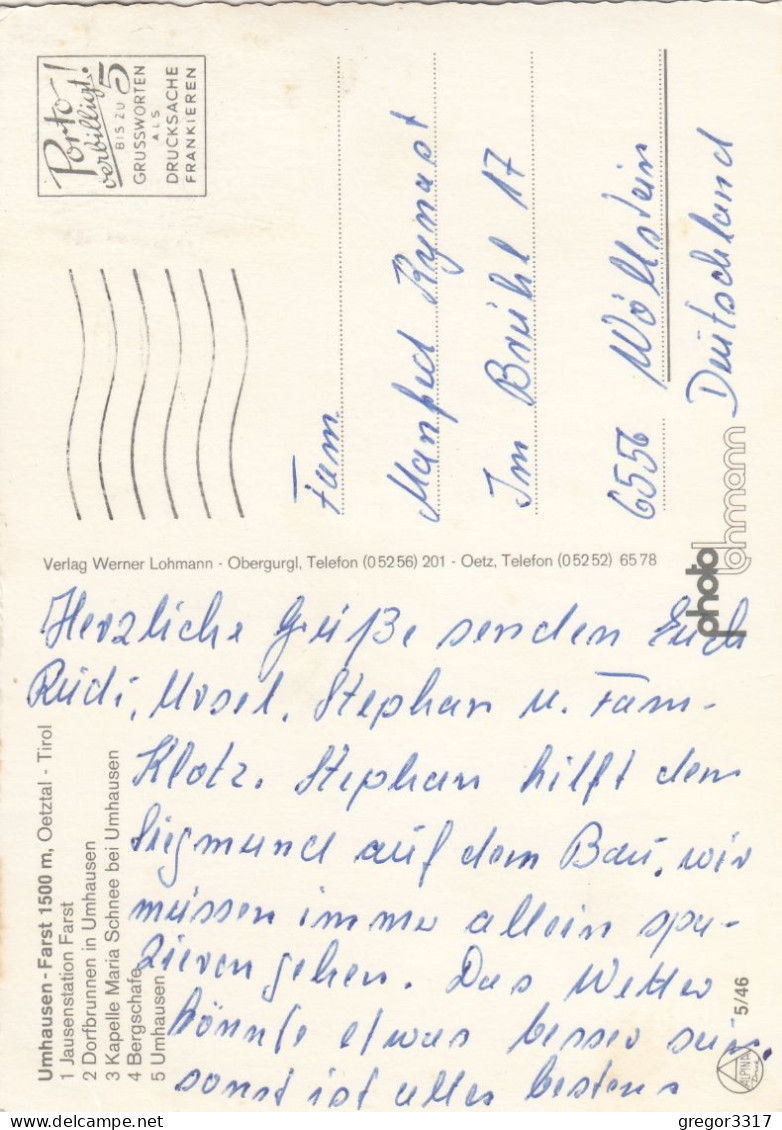 Porto-
verbilligt!
BIS ZU 5
GRUSSWORTEN
ALS
DRUCKSACHE
FRANKIEREN
Fam.
Manfred Kynast
Im Brühl 17
6556 Wöllstein
Deutschland
Verlag Werner Lohmann - Obergurgl, Telefon (05256) 201 - Oetz, Telefon (05252) 6578
photo
lohmann
Herzliche Grüße senden Euch
Rudi, Ursel, Stephan u. Fam.
Klotz. Stephan hilft dem
Siegmund auf dem Bau, wir
müssen immer allein spa-
zieren gehen. Das Wetter
könnte etwas besser sein,
sonst ist alles bestens
Umhausen - Farst 1500 m, Oetztal - Tirol
1 Jausenstation Farst
2 Dorfbrunnen in Umhausen
3 Kapelle Maria Schnee bei Umhausen
4 Bergschafe
5 Umhausen
5/46
ALPINA
gregor3317